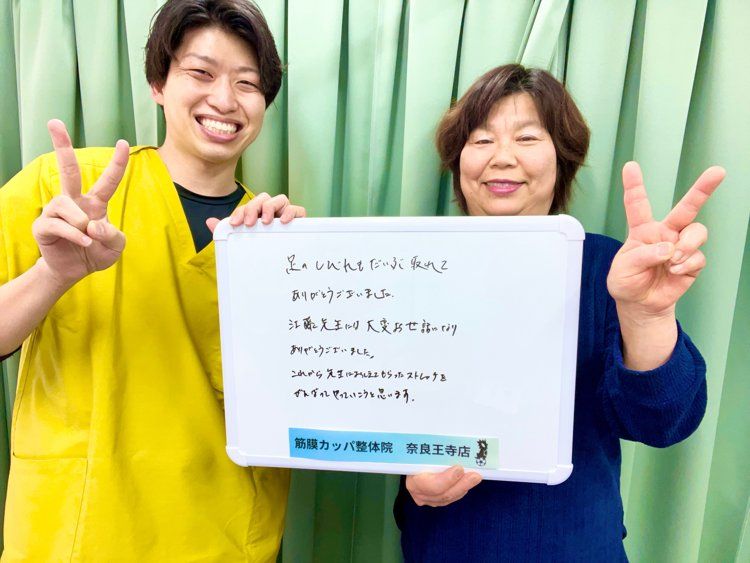 足のしびれもだいぶ取れて
ありがとうございました。
江藤先生には大変お世話になり
ありがとうございました。
これから先生におしえてもらったストレッチを
がんばってやっていこうと思います。
筋膜カッパ整体院 奈良王寺店